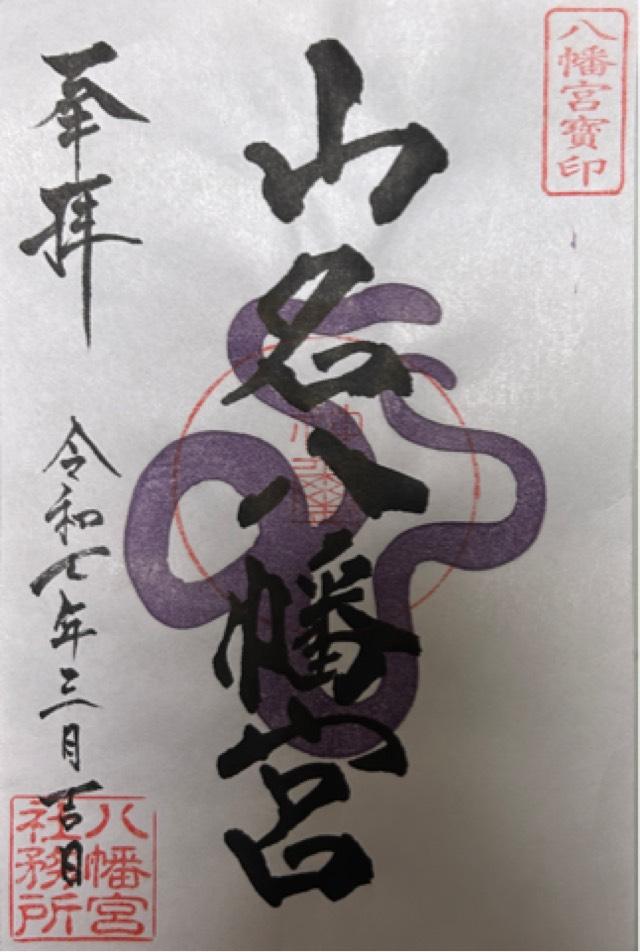 八幡宮寶印
山名八幡宮
奉拝
令和七年三月吉日
八幡宮
社務所